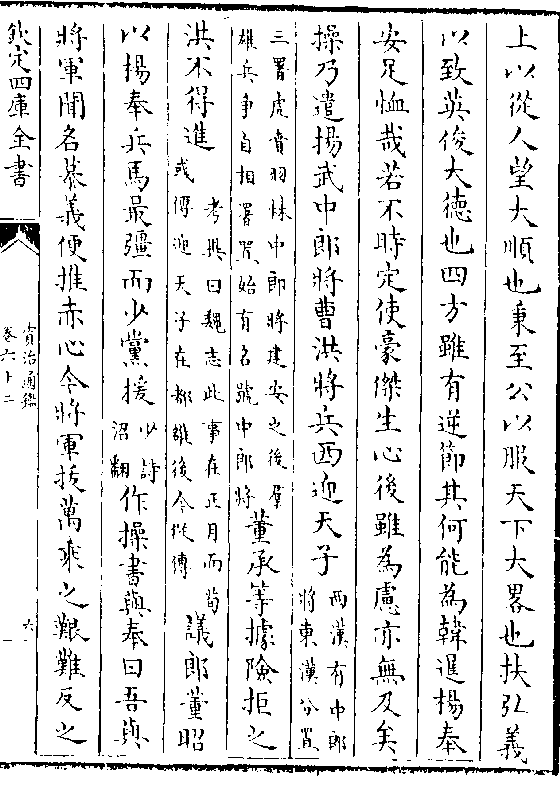 上以從人望大順也秉至公以服天下大畧也扶弘義
以致英俊大德也四方雖有逆節其何能為韓暹楊奉
安足恤哉若不時定使豪傑生心後雖為慮亦無及矣
操乃遣揚武中郎將曹洪將兵西迎天子兩漢有中郎將東漢分置
三署虎賁羽林中郎將建安之後羣雄兵爭自相署置始有名號中郎將董承等據險拒之
洪不得進考異曰魏志此事在正月而荀彧傳迎天子在都雒後今從傳議郎董昭
以楊奉兵馬最彊而少黨援少詩沼翻作操書與奉曰吾與
將軍聞名慕義便推赤心今將軍拔萬乘之艱難反之
欽定四庫全書
資治通鑑
卷六十二
六